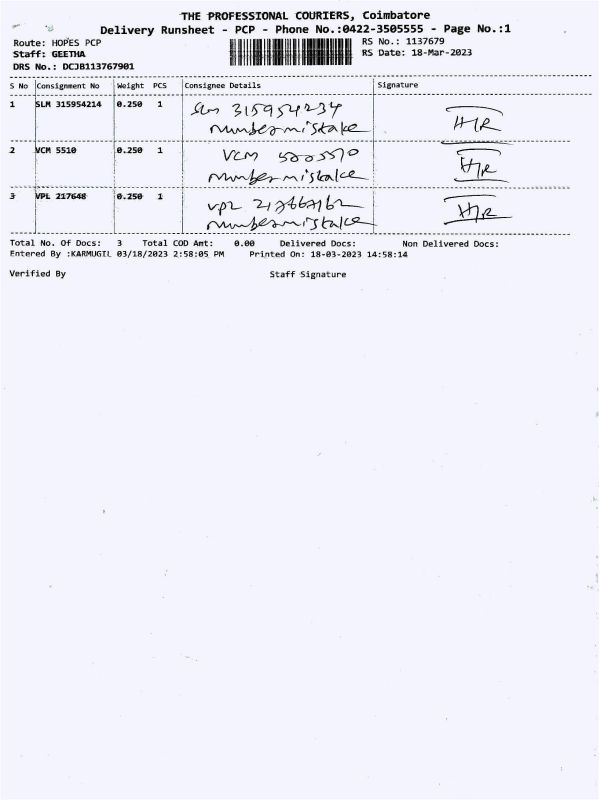 THE PROFESSIONAL COURIERS, Coimbatore
Delivery Runsheet - PCP - Phone No.:0422-3505555 - Page No.:1
Route: HOPES PCP
Staff: GEETHA
DRS No.: DCJB113767901
RS No.: 1137679
RS Date: 18-Mar-2023
S No Consignment No Weight PCS Consignee Details Signature
1 SLM 315954214 0.250 1 slm 315954234
numbermistake
H/R
2 VCM 5510 0.250 1 VCM
numbermistake
H/R
3 VPL 217648 0.250 1 VPL
numbermistake
H/R
Total No. Of Docs: 3 Total COD Amt: 0.00 Delivered Docs: Non Delivered Docs:
Entered By :KARMUGIL 03/18/2023 2:58:05 PM Printed On: 18-03-2023 14:58:14
Verified By Staff Signature